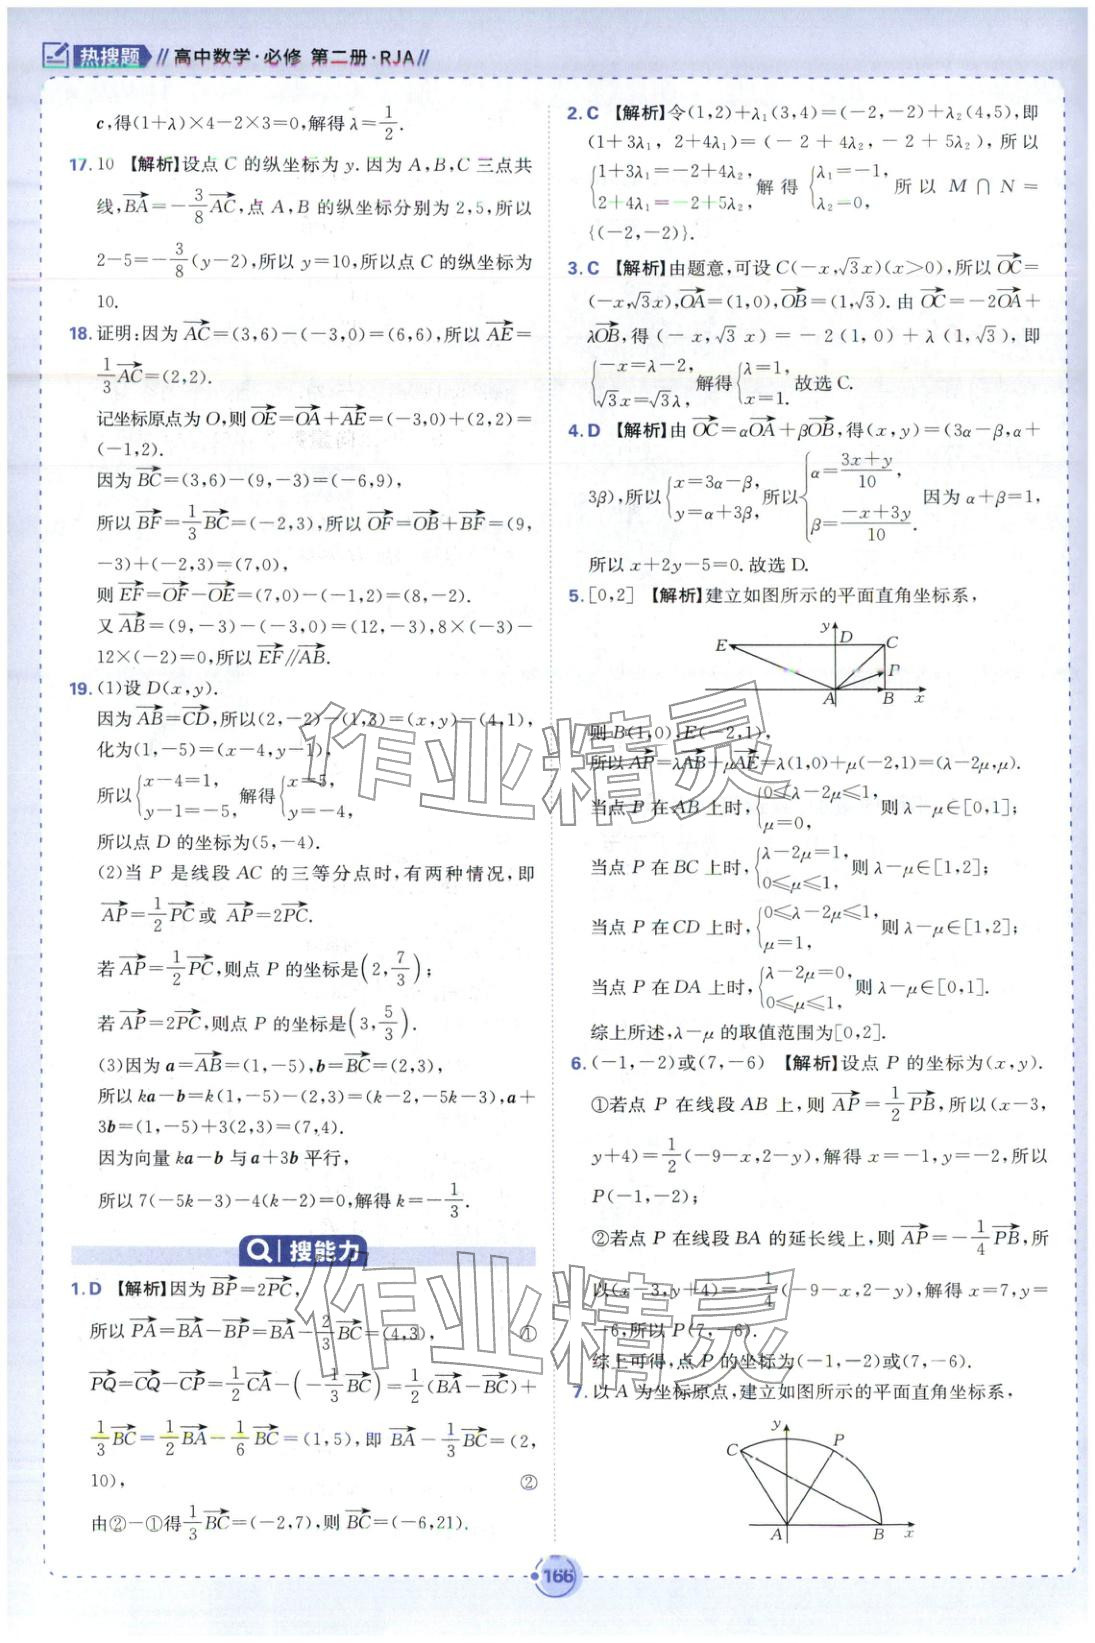 热搜题 // 高中数学·必修 第二册·RJA //
c,得(1+λ)×4-2×3=0,解得λ=1/2.
17. 10 【解析】设点 C 的纵坐标为 y. 因为 A,B,C 三点共
线,BA→=-3/8 AC→,点 A,B 的纵坐标分别为 2,5,所以
2-5=-3/8(y-2),所以 y=10,所以点 C 的纵坐标为
10.
18. 证明:因为 AC→=(3,6)-(-3,0)=(6,6),所以 AE→=
1/3 AC→=(2,2).
记坐标原点为 O,则 OE→=OA→+AE→=(-3,0)+(2,2)=
(-1,2).
因为 BC→=(3,6)-(9,-3)=(-6,9),
所以 BF→=1/3 BC→=(-2,3),所以 OF→=OB→+BF→=(9,
-3)+(-2,3)=(7,0),
则 EF→=OF→-OE→=(7,0)-(-1,2)=(8,-2).
又 AB→=(9,-3)-(-3,0)=(12,-3),8×(-3)-
12×(-2)=0,所以 EF→∥AB→.
19. (1)设 D(x,y).
因为 AB→=CD→,所以(2,-2)-(1,3)=(x,y)-(4,1),
化为(1,-5)=(x-4,y-1),
所以{x-4=1, y-1=-5, 解得{x=5, y=-4,
所以点 D 的坐标为(5,-4).
(2)当 P 是线段 AC 的三等分点时,有两种情况,即
AP→=1/2 PC→或 AP→=2PC→.
若 AP→=1/2 PC→,则点 P 的坐标是(2,7/3);
若 AP→=2PC→,则点 P 的坐标是(3,5/3).
(3)因为 a=AB→=(1,-5),b=BC→=(2,3),
所以 ka-b=k(1,-5)-(2,3)=(k-2,-5k-3),a+
3b=(1,-5)+3(2,3)=(7,4).
因为向量 ka-b 与 a+3b 平行,
所以 7(-5k-3)-4(k-2)=0,解得 k=-1/3.
搜能力
1. D 【解析】因为 BP→=2PC→,
所以 PA→=BA→-BP→=BA→-2/3 BC→=(4,3), ①
PQ→=CQ→-CP→=1/2 CA→-(-1/3 BC→)=1/2(BA→-BC→)+
1/3 BC→=1/2 BA→-1/6 BC→=(1,5),即 BA→-1/3 BC→=(2,
10), ②
由②-①得1/3 BC→=(-2,7),则 BC→=(-6,21).
2. C 【解析】令(1,2)+λ₁(3,4)=(-2,-2)+λ₂(4,5),即
(1+3λ₁, 2+4λ₁)=(-2+4λ₂,-2+5λ₂),所以
{1+3λ₁=-2+4λ₂ 2+4λ₁=-2+5λ₂, 解得 {λ₁=-1, λ₂=0, 所以 M∩N=
{(-2,-2)}.
3. C 【解析】由题意,可设 C(-x,√3x)(x>0),所以 OC→=
(-x,√3x),OA→=(1,0),OB→=(1,√3). 由 OC→=-2OA→+
λOB→,得(-x,√3x)=-2(1,0)+λ(1,√3),即
{-x=λ-2, √3x=√3λ, 解得{λ=1, x=1. 故选 C.
4. D 【解析】由 OC→=αOA→+βOB→,得(x,y)=(3α-β,α+
3β),所以{x=3α-β, y=α+3β, 所以{α=(3x+y)/10, β=(-x+3y)/10. 因为 α+β=1,
所以 x+2y-5=0. 故选 D.
5. [0,2] 【解析】建立如图所示的平面直角坐标系,
y D
E C
P
A B x
则 B(1,0),E(-2,1),
所以 AP→=λAB→+μAE→=λ(1,0)+μ(-2,1)=(λ-2μ,μ).
当点 P 在 AB 上时,{0≤λ-2μ≤1, μ=0, 则 λ-μ∈[0,1];
当点 P 在 BC 上时,{λ-2μ=1, 0≤μ≤1, 则 λ-μ∈[1,2];
当点 P 在 CD 上时,{0≤λ-2μ≤1, μ=1, 则 λ-μ∈[1,2];
当点 P 在 DA 上时,{λ-2μ=0, 0≤μ≤1, 则 λ-μ∈[0,1].
综上所述,λ-μ 的取值范围为[0,2].
6. (-1,-2)或(7,-6) 【解析】设点 P 的坐标为(x,y).
①若点 P 在线段 AB 上,则 AP→=1/2 PB→,所以(x-3,
y+4)=1/2(-9-x,2-y),解得 x=-1,y=-2,所以
P(-1,-2);
②若点 P 在线段 BA 的延长线上,则 AP→=-1/4 PB→,所
以(x-3,y+4)=-1/4(-9-x,2-y),解得 x=7,y=
-6,所以 P(7,-6).
综上可得,点 P 的坐标为(-1,-2)或(7,-6).
7. 以 A 为坐标原点,建立如图所示的平面直角坐标系,
y
C P
A B x
166
作业精灵
作业精灵